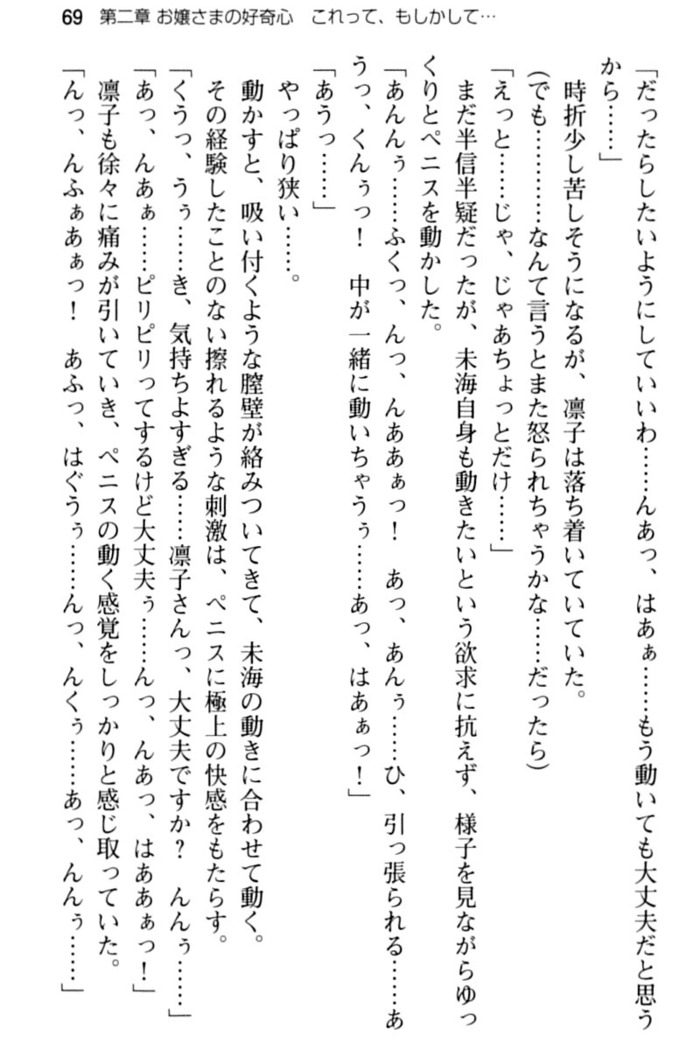 69　第二章 お嬢さまの好奇心　これって、もしかして…
「だったらしたいようにしていいわ……んあっ、はあぁ……もう動いても大丈夫だと思う
から……」
時折少し苦しそうになるが、凛子は落ち着いていていた。
(でも…………なんて言うとまた怒られちゃうかな……だったら)
「えっと……じゃ、じゃあちょっとだけ……」
まだ半信半疑だったが、未海自身も動きたいという欲求に抗えず、様子を見ながらゆっ
くりとペニスを動かした。
「あんんぅ……ふくっ、んっ、んああぁっ！　あっ、あんぅ……ひ、引っ張られる……あ
うっ、くんぅっ！　中が一緒に動いちゃうぅ……あっ、はあぁっ！」
「あうっ……」
やっぱり狭い……。
動かすと、吸い付くような膣壁が絡みついてきて、未海の動きに合わせて動く。
その経験したことのない擦れるような刺激は、ペニスに極上の快感をもたらす。
「くうっ、うぅ……き、気持ちよすぎる……凛子さんっ、大丈夫ですか？　んんぅ……」
「あっ、んあぁ……ピリピリってするけど大丈夫ぅ……んっ、んあっ、はああぁっ！」
凛子も徐々に痛みが引いていき、ペニスの動く感覚をしっかりと感じ取っていた。
「んっ、んふぁあぁっ！　あふっ、はぐうぅ……んっ、んくぅ……あっ、んんぅ……」